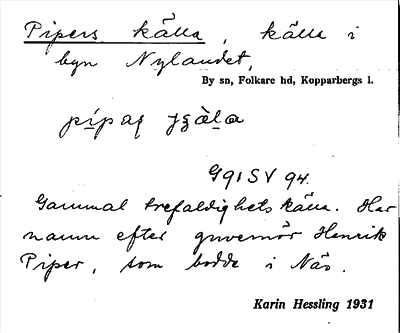 Pipers källa, källa i
byn Nylandet,
By sn, Folkare hd, Kopparbergs l.
G91SV 94.
Gammal trefaldighetskälla. Har
namn efter guvernör Henrik
Piper, som bodde i Näs.
Karin Hessling 1931